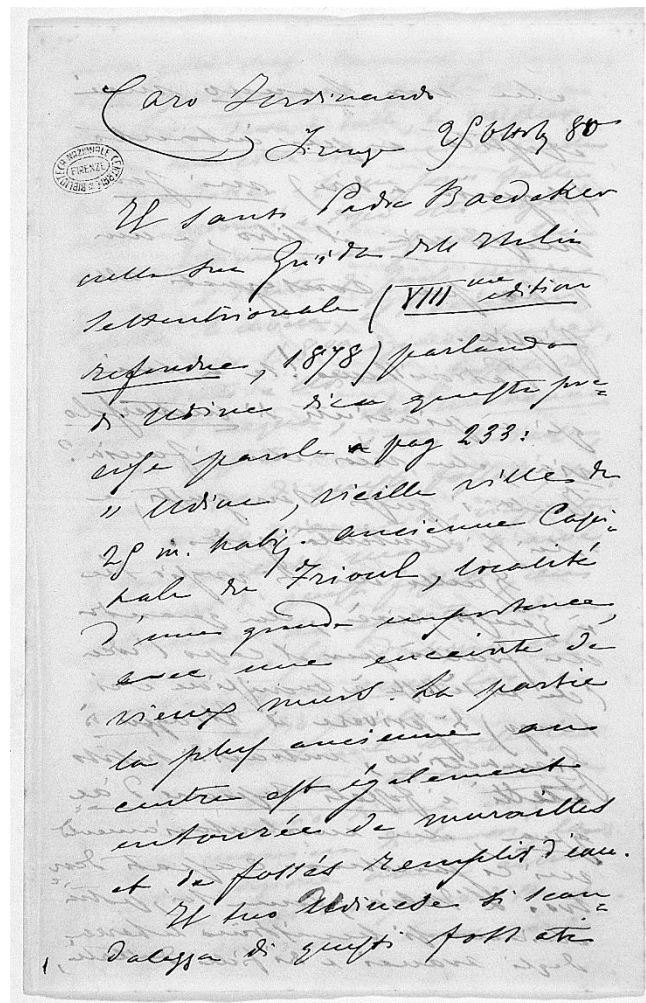 Caro Ferdinando
Firenze 25 Ottob 80
BIBLIOTECA NAZIONALE CENTRALE
FIRENZE
Il santo Padre Baedeker
nella sua Guida dell' Italia
settentrionale (VIIIme edition
refondue, 1878) parlando
di Udine dice queste pre-
cise parole a pag 233:
" Udine, vieille ville de
25 m. habit. ancienne Capi-
tale du Frioul, localité
d'une grande importance,
avec une enceinte de
vieux murs. La partie
la plus ancienne au
centre est également
entourée de murailles
et de fossés remplis d'eau.
Il tuo Udinese si scan-
dalezza di questi fossati